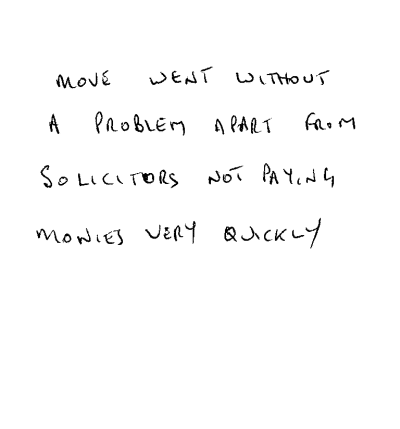 MOVE WENT WITHOUT
A PROBLEM APART FROM
SOLICITORS NOT PAYING
MONIES VERY QUICKLY